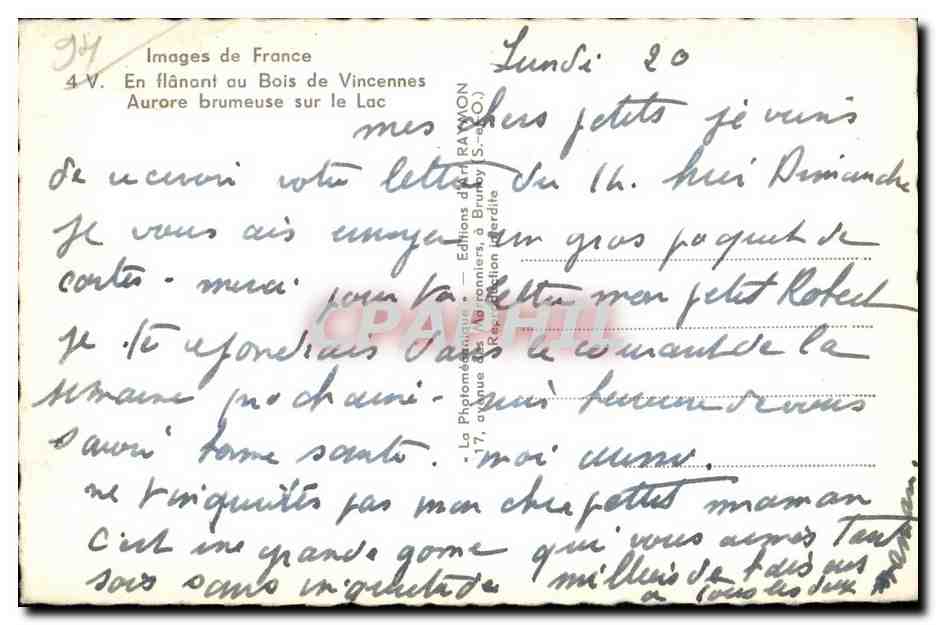 94
Images de France
4 V. En flânant au Bois de Vincennes
Aurore brumeuse sur le Lac
La Photomécanique — Editions d'Art RAYMON
17, avenue des Marronniers, à Brunoy (S.-et-O.)
Reproduction interdite
CPAPHIL
Lundi 20
mes chers petits je viens
de recevoir votre lettre du 14. hier Dimanche
je vous ais envoyer un gros paquet de
cartes - merci pour ta lettre mon petit Robert
je te repondrais dans le courant de la
semaine prochaine - suis heureuse de vous
savoir bonne santé. moi aussi.
ne t'inquietés pas mon cher petit maman
C'est une grande gome qui vous aimes Tant
sois sans inquietude milliers de baisers
a tous les deux
maman